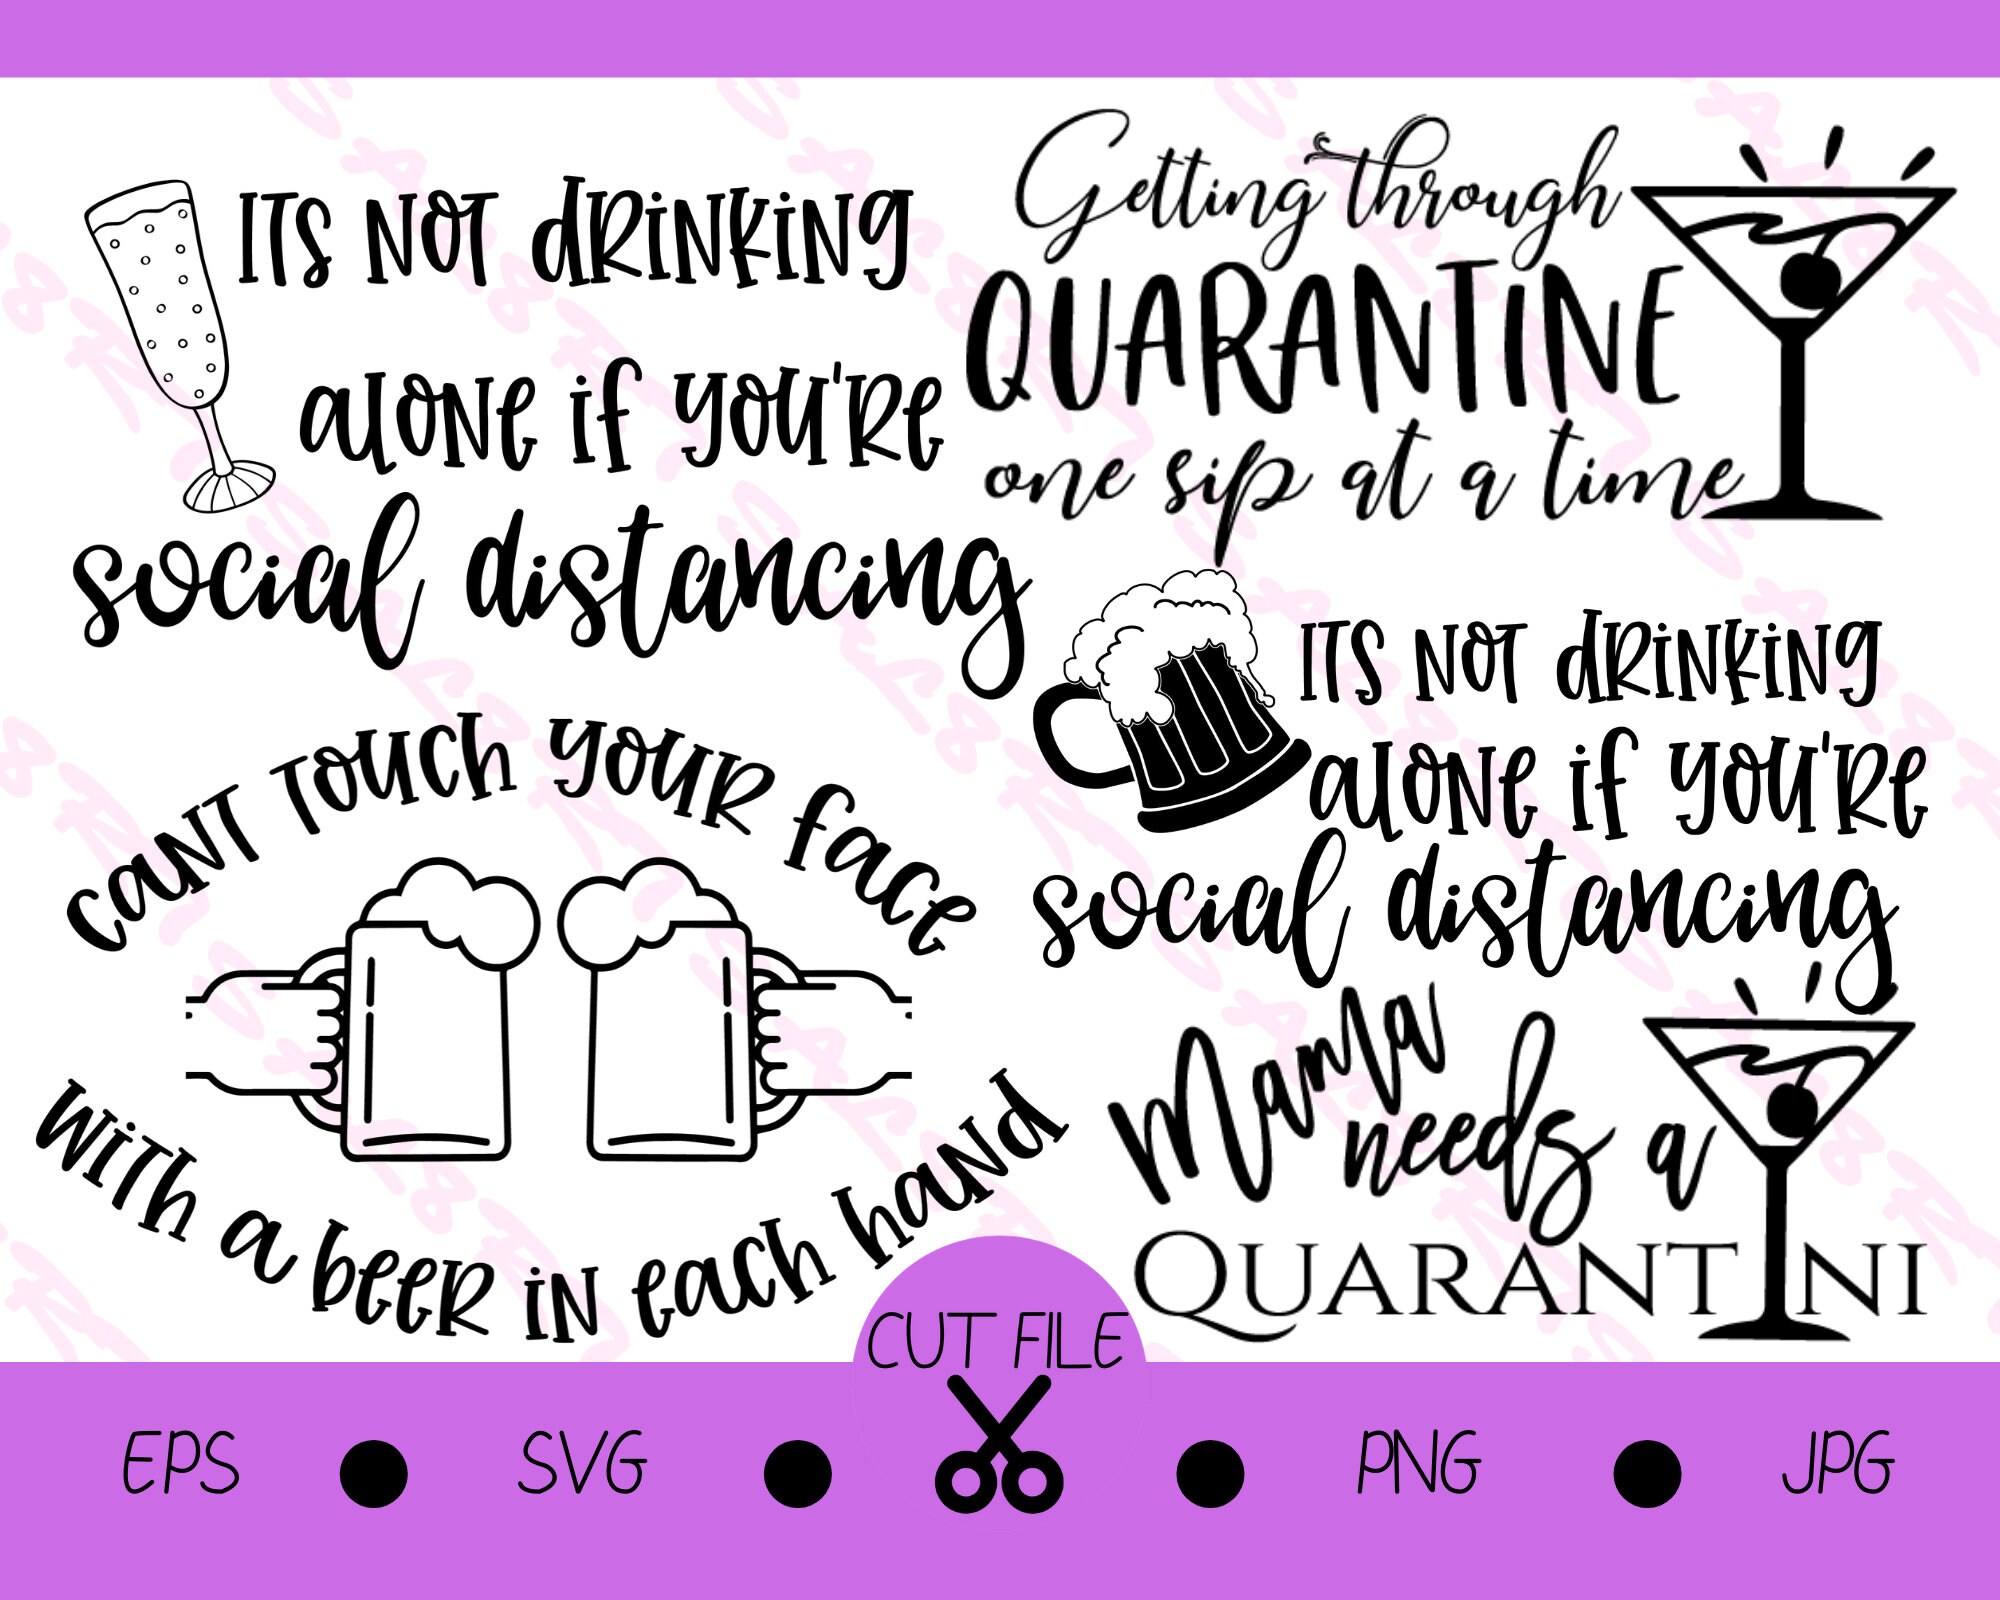 ITS NOT dRiNKiNg
alONe if yOU'Re
social distancing
Getting through
QUARANTINE
one sip at a time
caNT TOUch yOUR face
wiTh a beeR iN each haNd
ITS NOT dRiNKiNg
alONe if yOU'Re
social distancing
Mama
needs a
QUARANTINI
CUT FILE
EPS
SVG
PNG
JPG